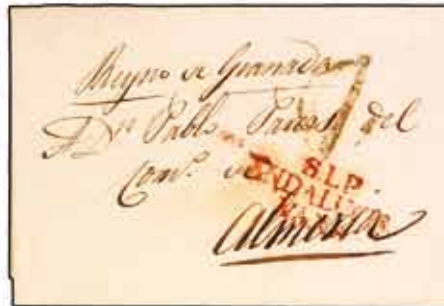 Reyno de Granada
A Dn Pablo del
Com.o de
S.L.P.
ANDALUCIA
BAXA
Almeria